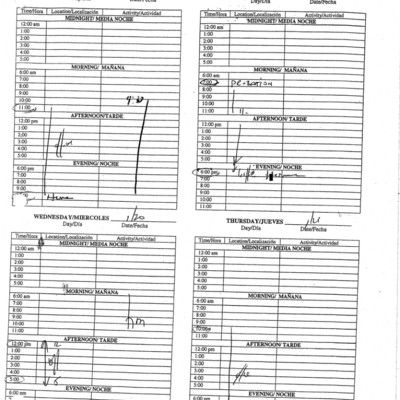 Day/Día Date/Fecha
Time/Hora Location/Localización Activity/Actividad
MIDNIGHT/ MEDIA NOCHE
12:00 am
1:00
2:00
3:00
4:00
5:00
MORNING/ MAÑANA
6:00 am
7:00
8:00
9:00
10:00
11:00
AFTERNOON/TARDE
12:00 pm
1:00
2:00
3:00
4:00
5:00
EVENING/ NOCHE
6:00 pm
7:00
8:00
9:00
Day/Día Date/Fecha
Time/Hora Location/Localización Activity/Actividad
MIDNIGHT/ MEDIA NOCHE
12:00 am
1:00
2:00
3:00
4:00
5:00
MORNING/ MAÑANA
6:00 am
7:00
8:00
9:00
10:00
11:00
AFTERNOON/TARDE
12:00 pm
1:00
2:00
3:00
4:00
5:00
EVENING/ NOCHE
6:00 pm
7:00
8:00
9:00
10:00
11:00
WEDNESDAY/MIERCOLES 1/20
Day/Día Date/Fecha
Time/Hora Location/Localización Activity/Actividad
MIDNIGHT/ MEDIA NOCHE
12:00 am
1:00
2:00
3:00
4:00
5:00
MORNING/ MAÑANA
6:00 am
7:00
8:00
9:00
10:00
11:00
AFTERNOON/ TARDE
12:00 pm
1:00
2:00
3:00
4:00
5:00
EVENING/ NOCHE
6:00 pm
THURSDAY/JUEVES
Day/Día Date/Fecha
Time/Hora Location/Localización Activity/Actividad
MIDNIGHT/ MEDIA NOCHE
12:00 am
1:00
2:00
3:00
4:00
5:00
MORNING/ MAÑANA
6:00 am
7:00
8:00
9:00
10:00
11:00
AFTERNOON/ TARDE
12:00 pm
1:00
2:00
3:00
4:00
5:00
EVENING/ NOCHE
6:00 pm